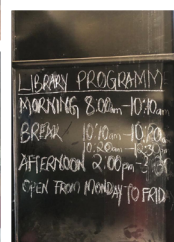 LIBRARY PROGRAMM
MORNING 8:00am - 10:10am
BREAK 10:10am - 10:20am
10:20am - 12:30pm
AFTERNOON 2:00pm -
OPEN FROM MONDAY TO FRID